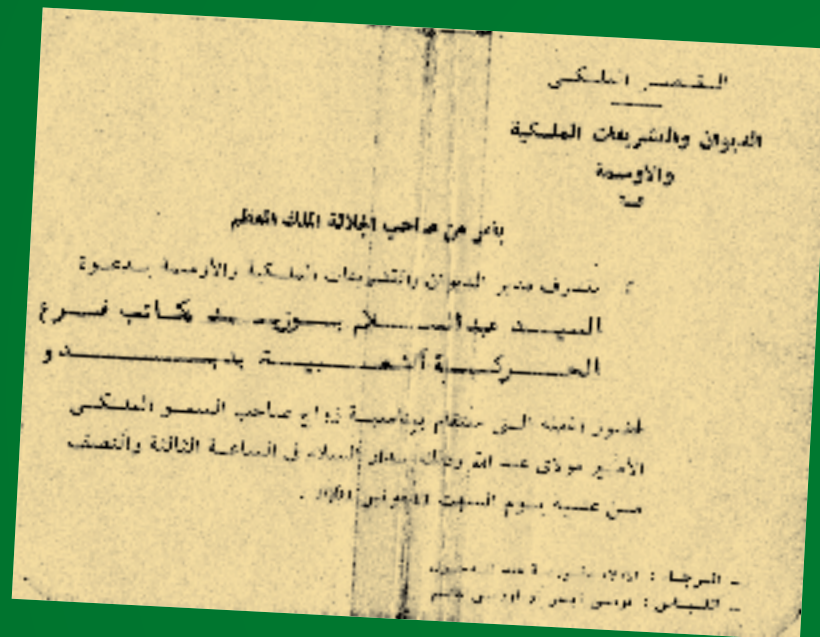 القصر الملكي
الديوان والتشريفات الملكية
والاوسمة
بأمر من صاحب الجلالة الملك المعظم
يتشرف مدير الديوان والتشريفات الملكية والأوسمة بدعوة
السيد عبد السلام بوزيد كاتب فرع
الحركة الشعبية بدبدو
لحضور الحفلة التي ستقام بمناسبة زواج صاحب السمو الملكي
الأمير مولاي عبد الله وذلك بدار السلام في الساعة الثالثة والنصف
من عشية يوم السبت
- الرجاء : الادلاء عند الدخول
- اللباس :